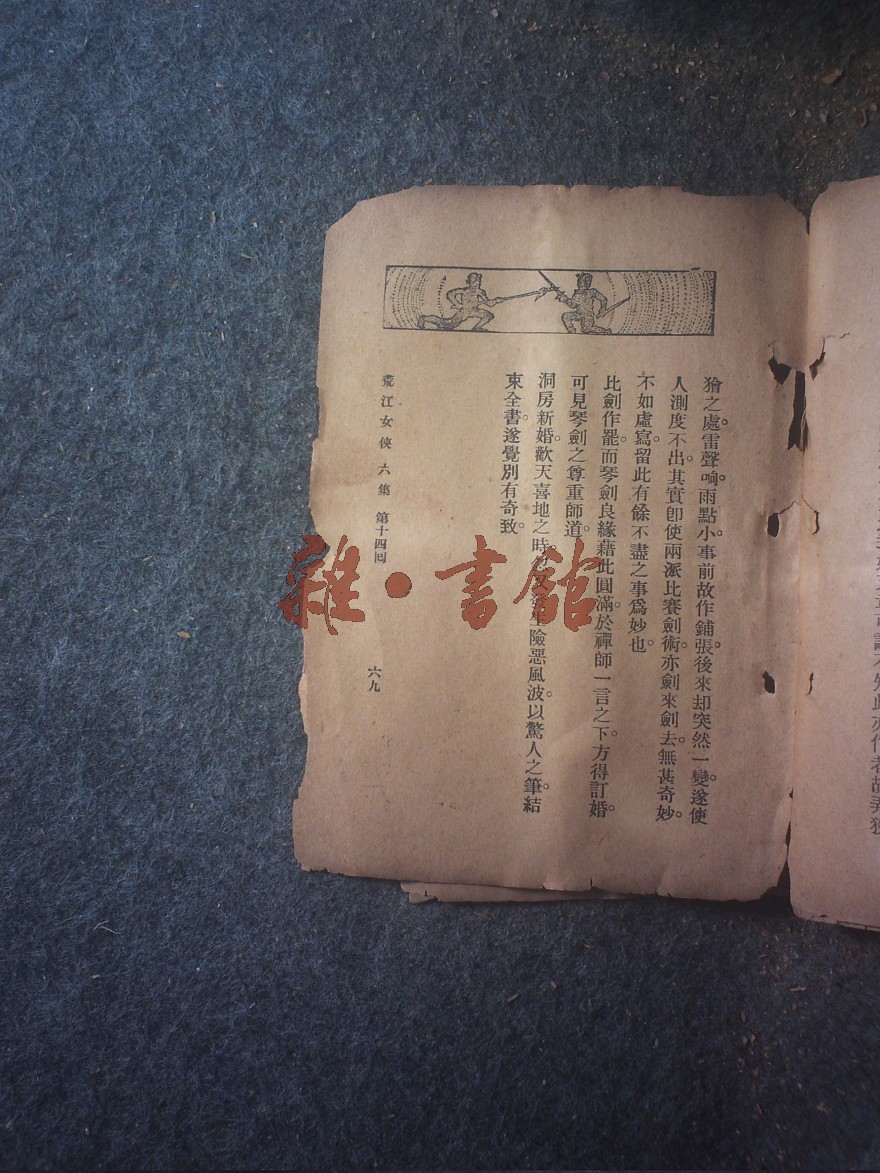 獪之處。雷聲响。雨點小。事前故作鋪張。後來却突然一變。遂使
人測度不出。其實卽使兩派比賽劍術。亦劍來劍去。無甚奇妙。
不如虛寫。留此有餘不盡之事爲妙也。
比劍作罷。而琴劍良緣藉此圓滿。於禪師一言之下。方得訂婚。
可見琴劍之尊重師道。
洞房新婚。歡天喜地之時 險惡風波。以驚人之筆結
束全書。遂覺別有奇致。
荒江女俠 六集 第十四回
六九
雜·書館